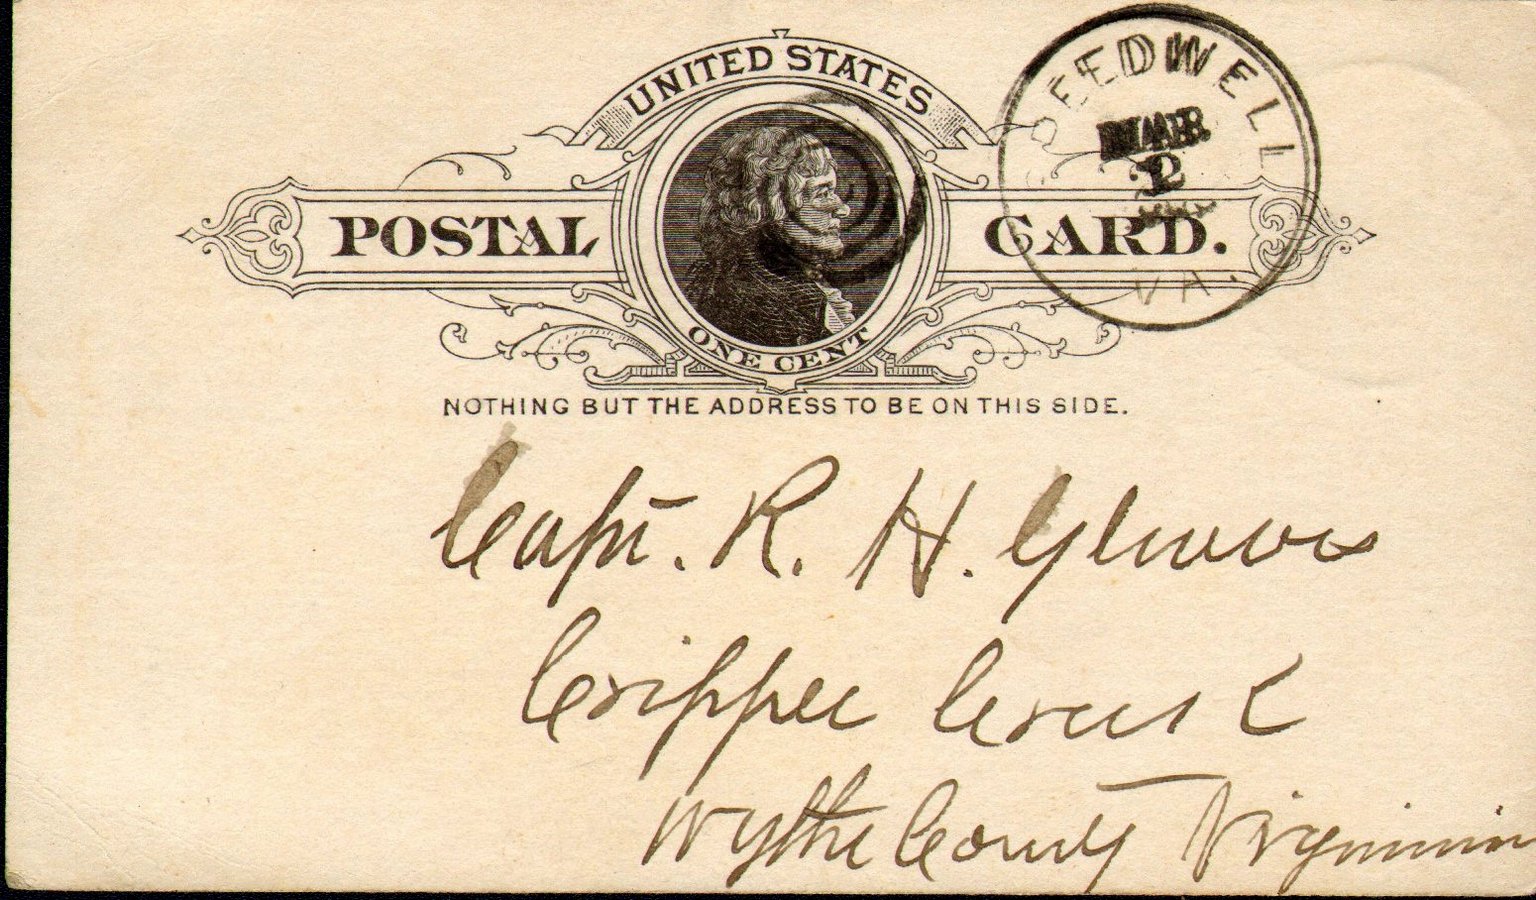 UNITED STATES
POSTAL CARD.
ONE CENT
NOTHING BUT THE ADDRESS TO BE ON THIS SIDE.
SPEEDWELL
MAR
2
VA.
Capt. R. H. Gleaves
Cripple Creek
Wythe County Virginia